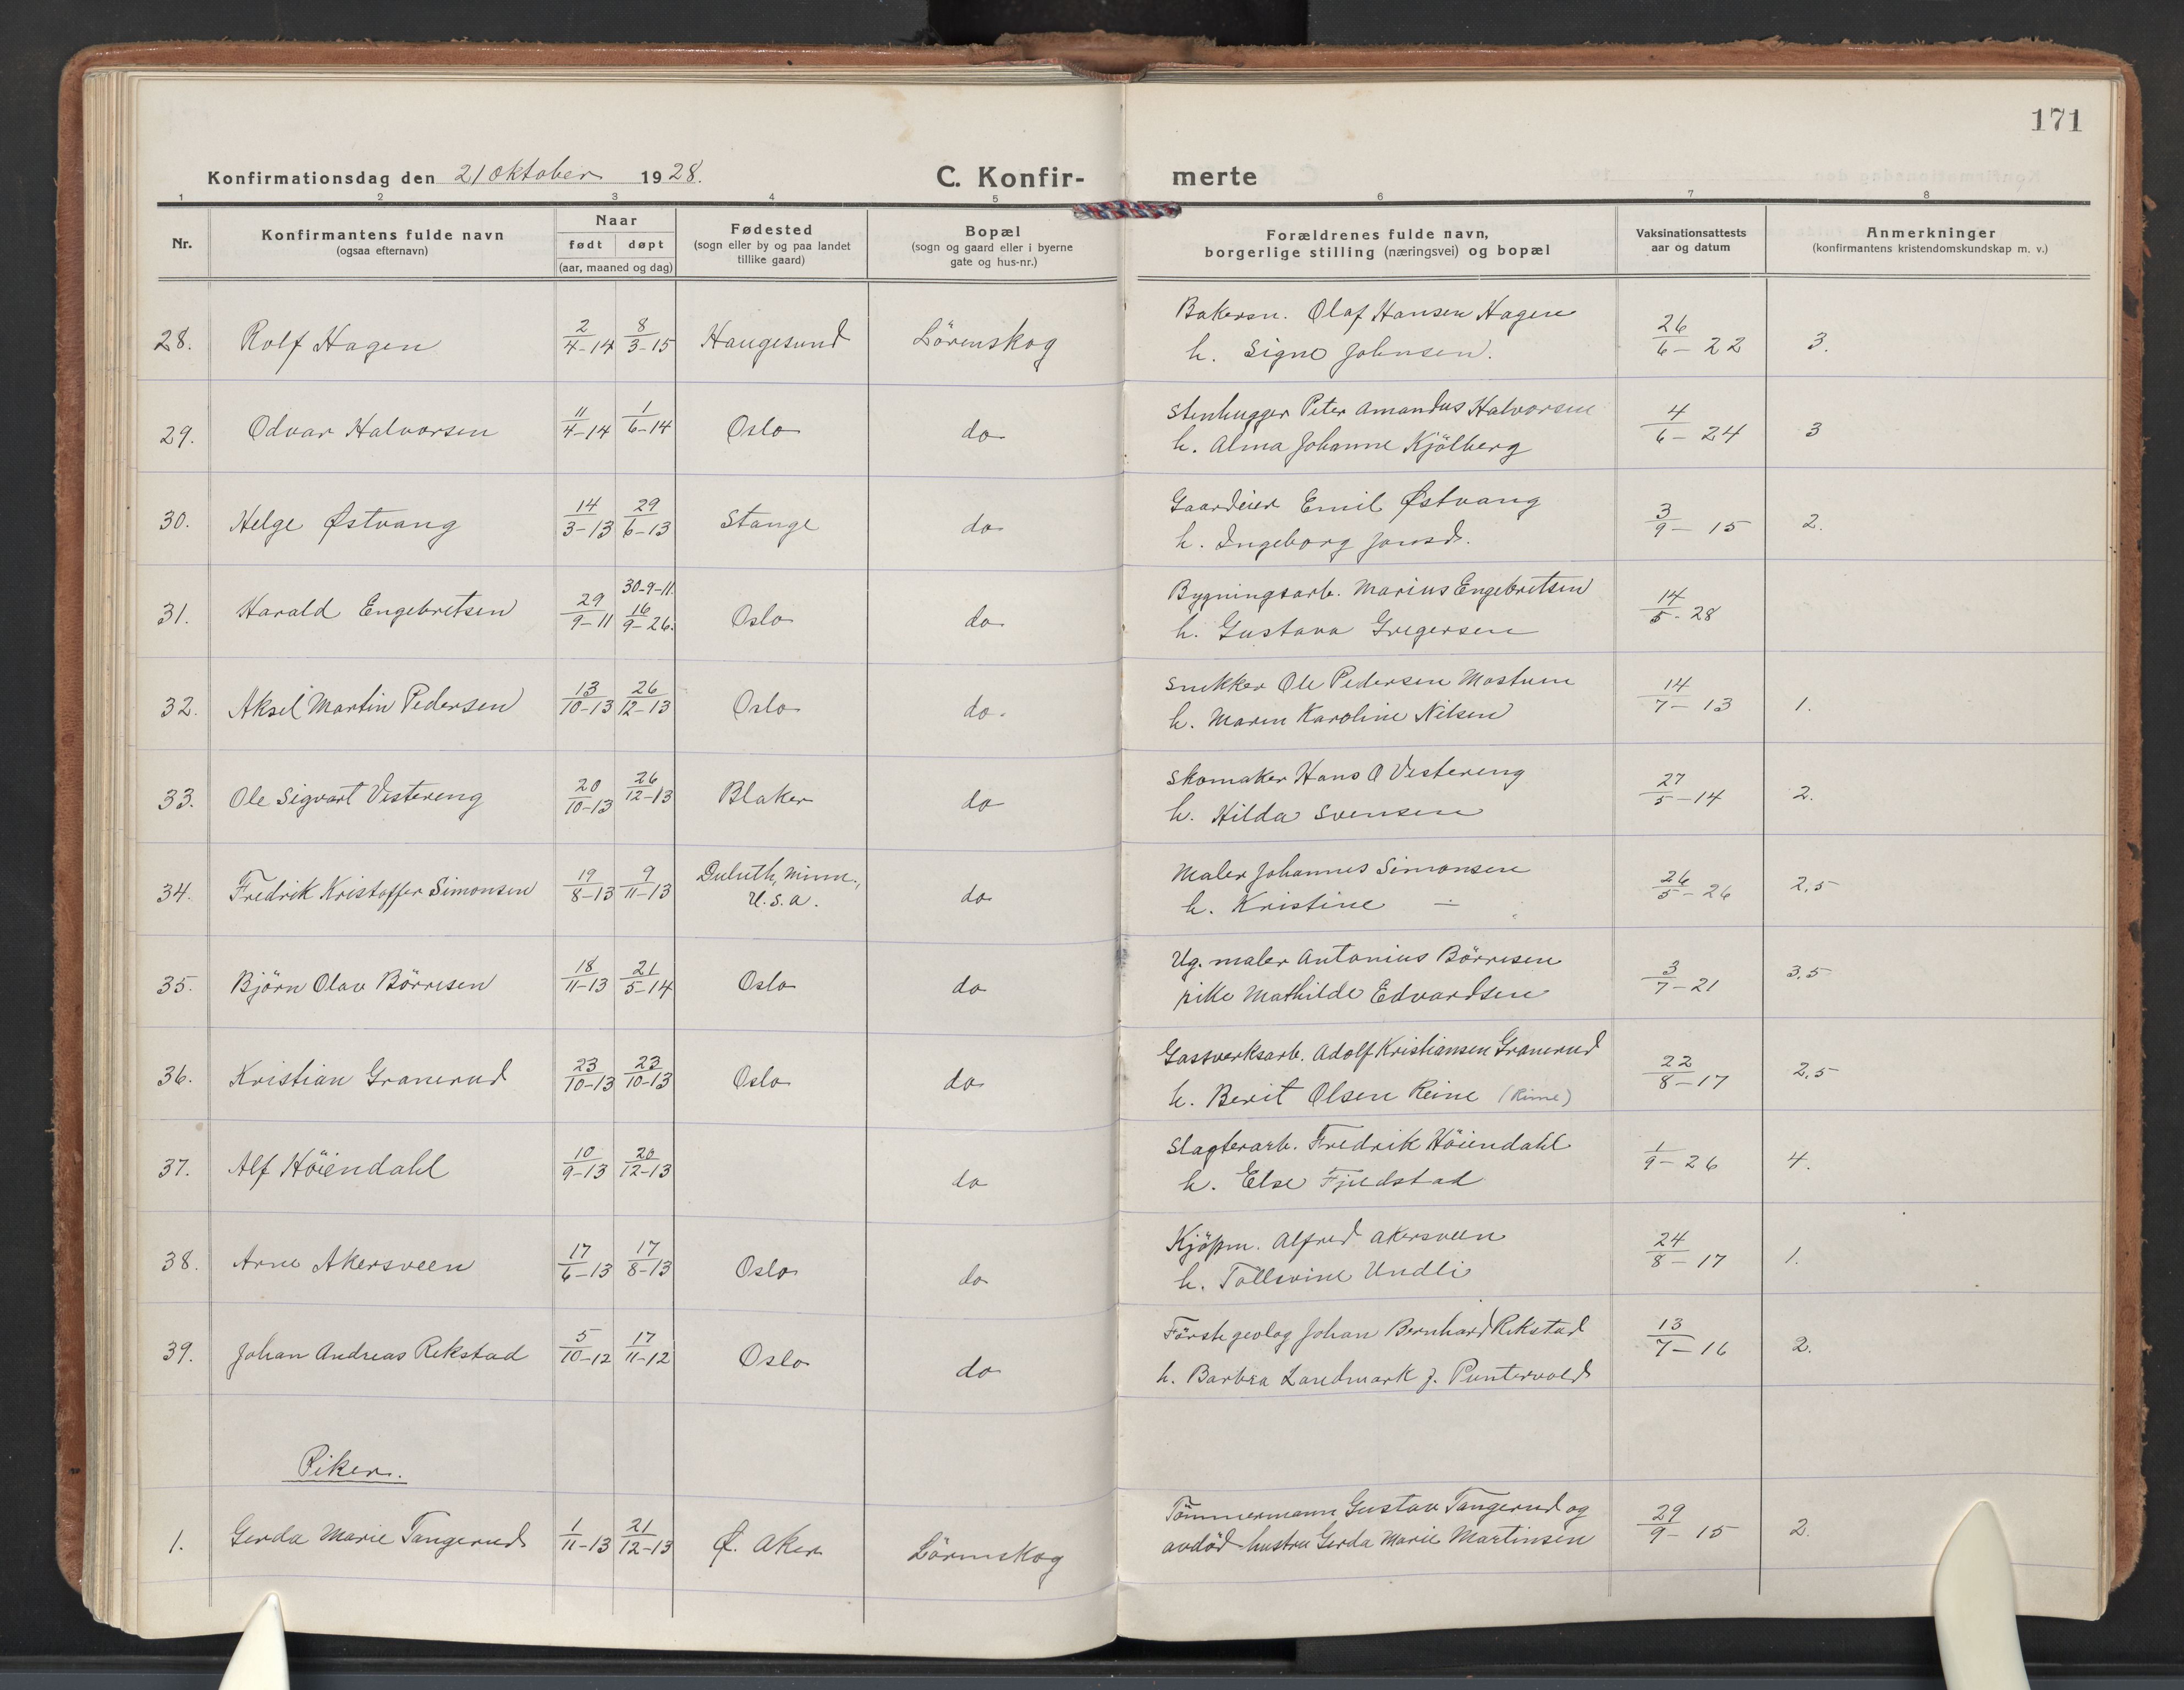 171
Konfirmationsdag den 21 Oktober 1928.
C. Konfir- merte
1 2 3 4 5 6 7 8
Nr.
Konfirmantens fulde navn
(ogsaa efternavn)
Naar
født døpt
(aar, maaned og dag)
Fødested
(sogn eller by og paa landet
tillike gaard)
Bopæl
(sogn og gaard eller i byerne
gate og hus-nr.)
Forældrenes fulde navn,
borgerlige stilling (næringsvei) og bopæl
Vaksinationsattests
aar og datum
Anmerkninger
(konfirmantens kristendomskundskap m. v.)
28. Rolf Hagen 2/4-14 8/3-15 Haugesund Lörenskog Bakersv. Olaf Hansen Hagen 26/6-22 3.
h. Signe Johnsen.
29. Odvar Halvorsen 11/4-14 1/6-14 Oslo do Stenhugger Peter Amandus Halvorsen 4/6-24 3
h. Alma Johanne Kjölberg
30. Helge Østvang 14/3-13 29/6-13 Stange do Gaardeier Emil Østvang 3/9-15 2.
h. Ingeborg Jansd.
30-9-11.
31. Harald Engebretsen 29/9-11 16/9-26. Oslo do Bygningsarb. Marius Engebretsen 14/5-28
h. Gustava Gregersen
32. Aksel Martin Pedersen 13/10-13 26/12-13 Oslo do. Snekker Ole Pedersen Mostuen 14/7-13 1.
h. Maren Karoline Nilsen
33. Ole Sigvart Vestereng 20/10-13 26/12-13 Blaker do Skomaker Hans O Vestereng 27/5-14 2.
h. Hilda Svensen
34. Fredrik Kristoffer Simonsen 19/8-13 9/11-13 Duluth, Minn., do Maler Johannes Simonsen 26/5-26 2,5
U.S.A. h. Kristine —
35. Björn Olav Börresen 18/11-13 21/5-14 Oslo do Ug. maler Antonius Börresen 3/7-21 3,5
pike Mathilde Edvardsen
36. Kristian Granerud 23/10-13 23/10-13 Oslo do Gassverksarb. Adolf Kristiansen Granerud 22/8-17 2,5
h. Berit Olsen Reine (Rime)
37. Alf Höiendahl 10/9-13 20/12-13 do Slagterarb. Fredrik Höiendahl 1/9-26 4.
h. Else Fjeldstad
38. Arne Akersveen 17/6-13 17/8-13 Oslo do Kjöpm. Alfred Akersveen 24/8-17 1.
h. Tollevine Undli
39. Johan Andreas Rekstad 5/10-12 17/11-12 Oslo do Förstegeolog Johan Bernhard Rekstad 13/7-16 2.
h. Barbra Landmark f. Puntervold
Piker.
1. Gerda Marie Tangerud 1/11-13 21/12-13 Ø. Aker Lörenskog Tömmermann Gustav Tangerud og 29/9-15 2.
avdöd hustru Gerda Marie Martinsen